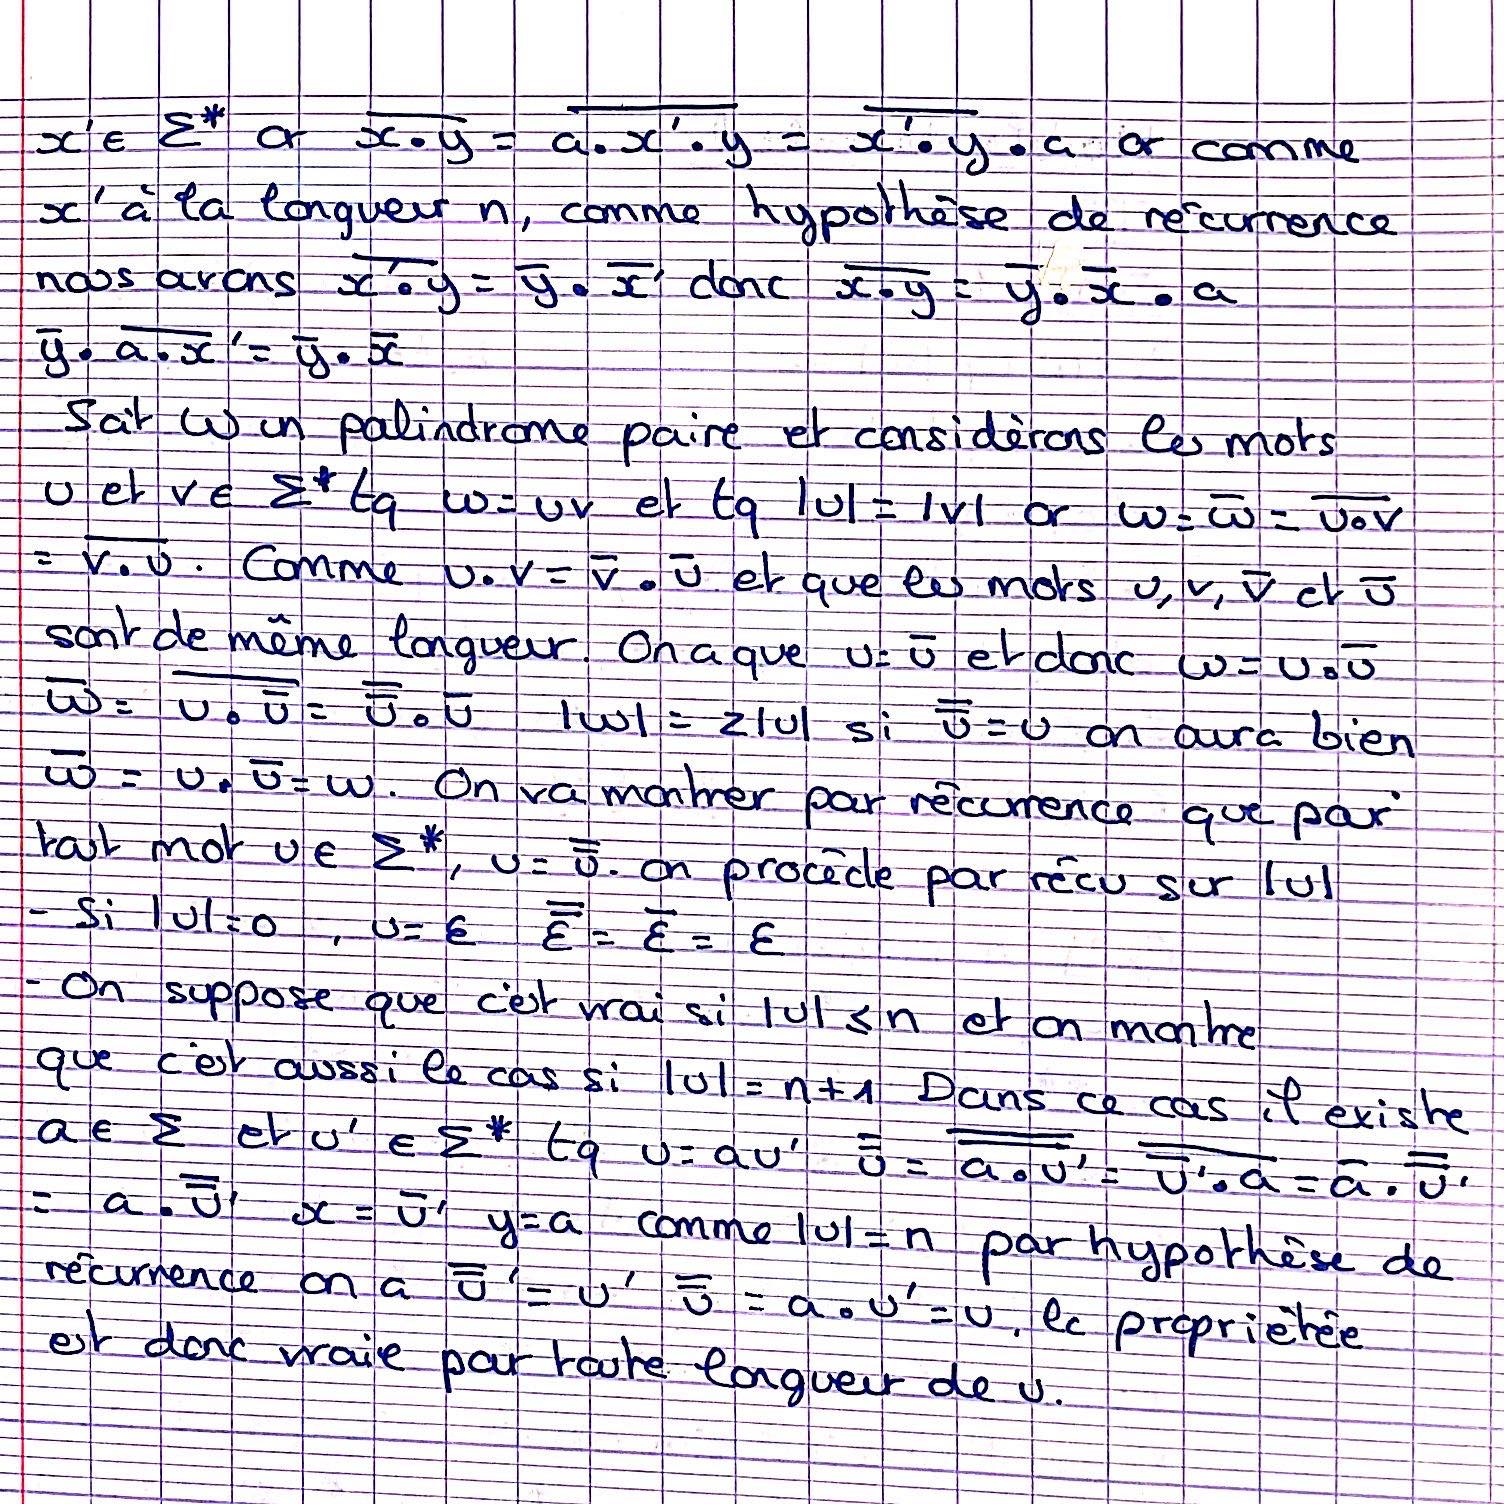 x' ∈ Σ* or \overline{x.y} = \overline{a.x'.y} = \overline{x'.y}.a or comme
x' à la longueur n, comme hypothèse de récurrence
nous avons \overline{x'.y} = ȳ.x̄' donc \overline{x.y} = ȳ.x̄.a
ȳ.\overline{a.x}' = ȳ.x̄
Soit w un palindrome paire et considèrons les mots
u et v ∈ Σ* tq w = uv et tq |u| = |v| or w = w̄ = \overline{u.v}
= \overline{v.u}. Comme u.v = v̄.ū et que les mots u, v, v̄ et ū
sont de même longueur. On a que u = ū et donc w = u.ū
w̄ = \overline{u.\bar{u}} = \bar{\bar{u}}.ū |w| = 2|u| si \bar{\bar{u}} = u on aura bien
w̄ = u.ū = w. On va montrer par récurrence que par
tout mot u ∈ Σ*, u = \bar{\bar{u}}. on procède par récu sur |u|
- Si |u| = 0, u = ε \bar{\bar{ε}} = \bar{ε} = ε
- On suppose que c'est vrai si |u| ≤ n et on montre
que c'est aussi le cas si |u| = n+1 Dans ce cas il existe
a ∈ Σ et u' ∈ Σ* tq u = au' \bar{\bar{u}} = \overline{\overline{a.u'}} = \overline{\bar{u}'.a} = ā.\bar{\bar{u}}'
= a.\bar{\bar{u}}' x = ū' y = a comme |u| = n par hypothèse de
récurrence on a \bar{\bar{u}}' = u' \bar{\bar{u}} = a.u' = u, la propriétée
est donc vraie par toute longueur de u.